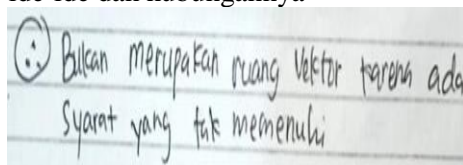 ∴ Bukan merupakan ruang Vektor karena ada
Syarat yang tak memenuhi